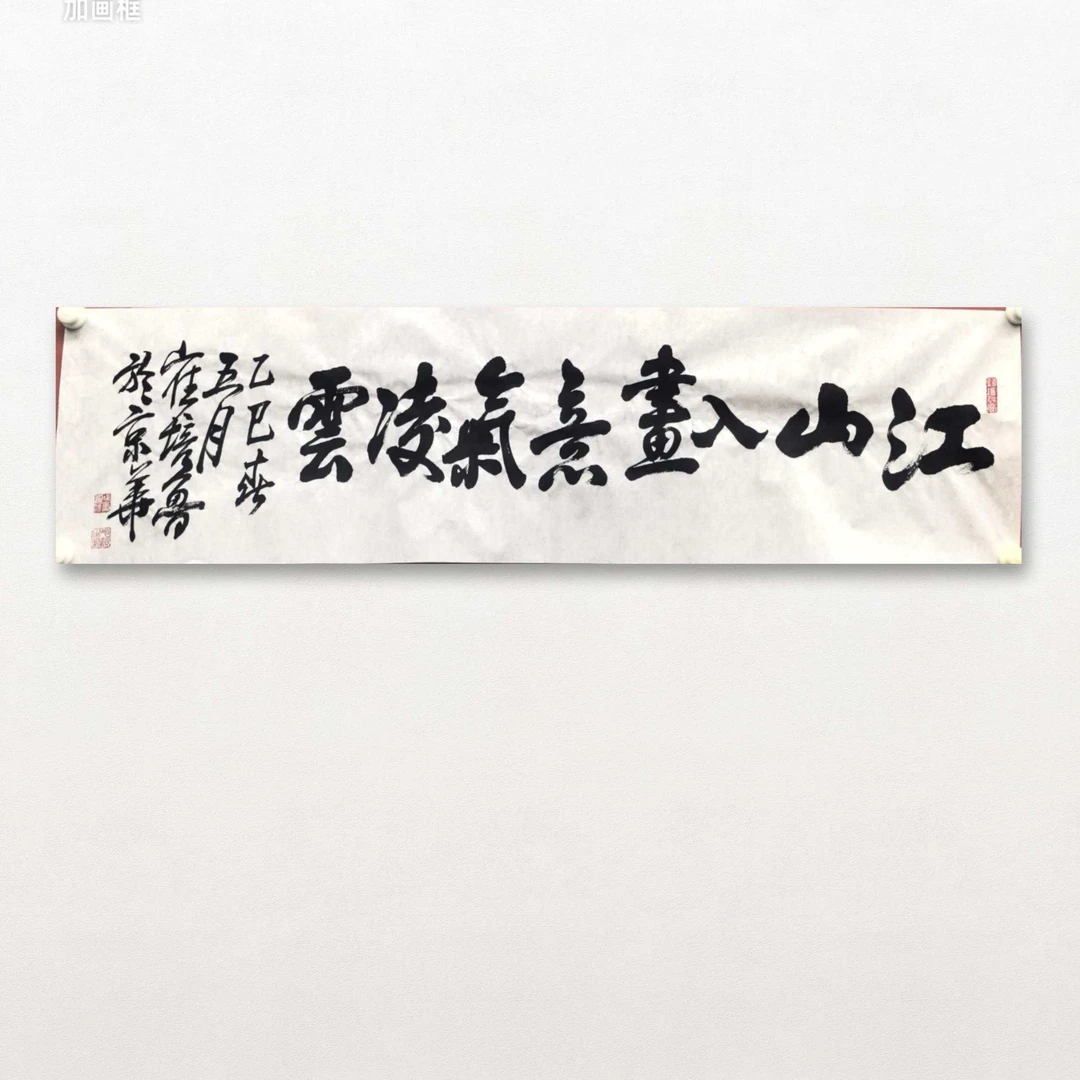 加画框
江山入畫意氣凌雲
乙巳春
五月
崔培魯
於京華